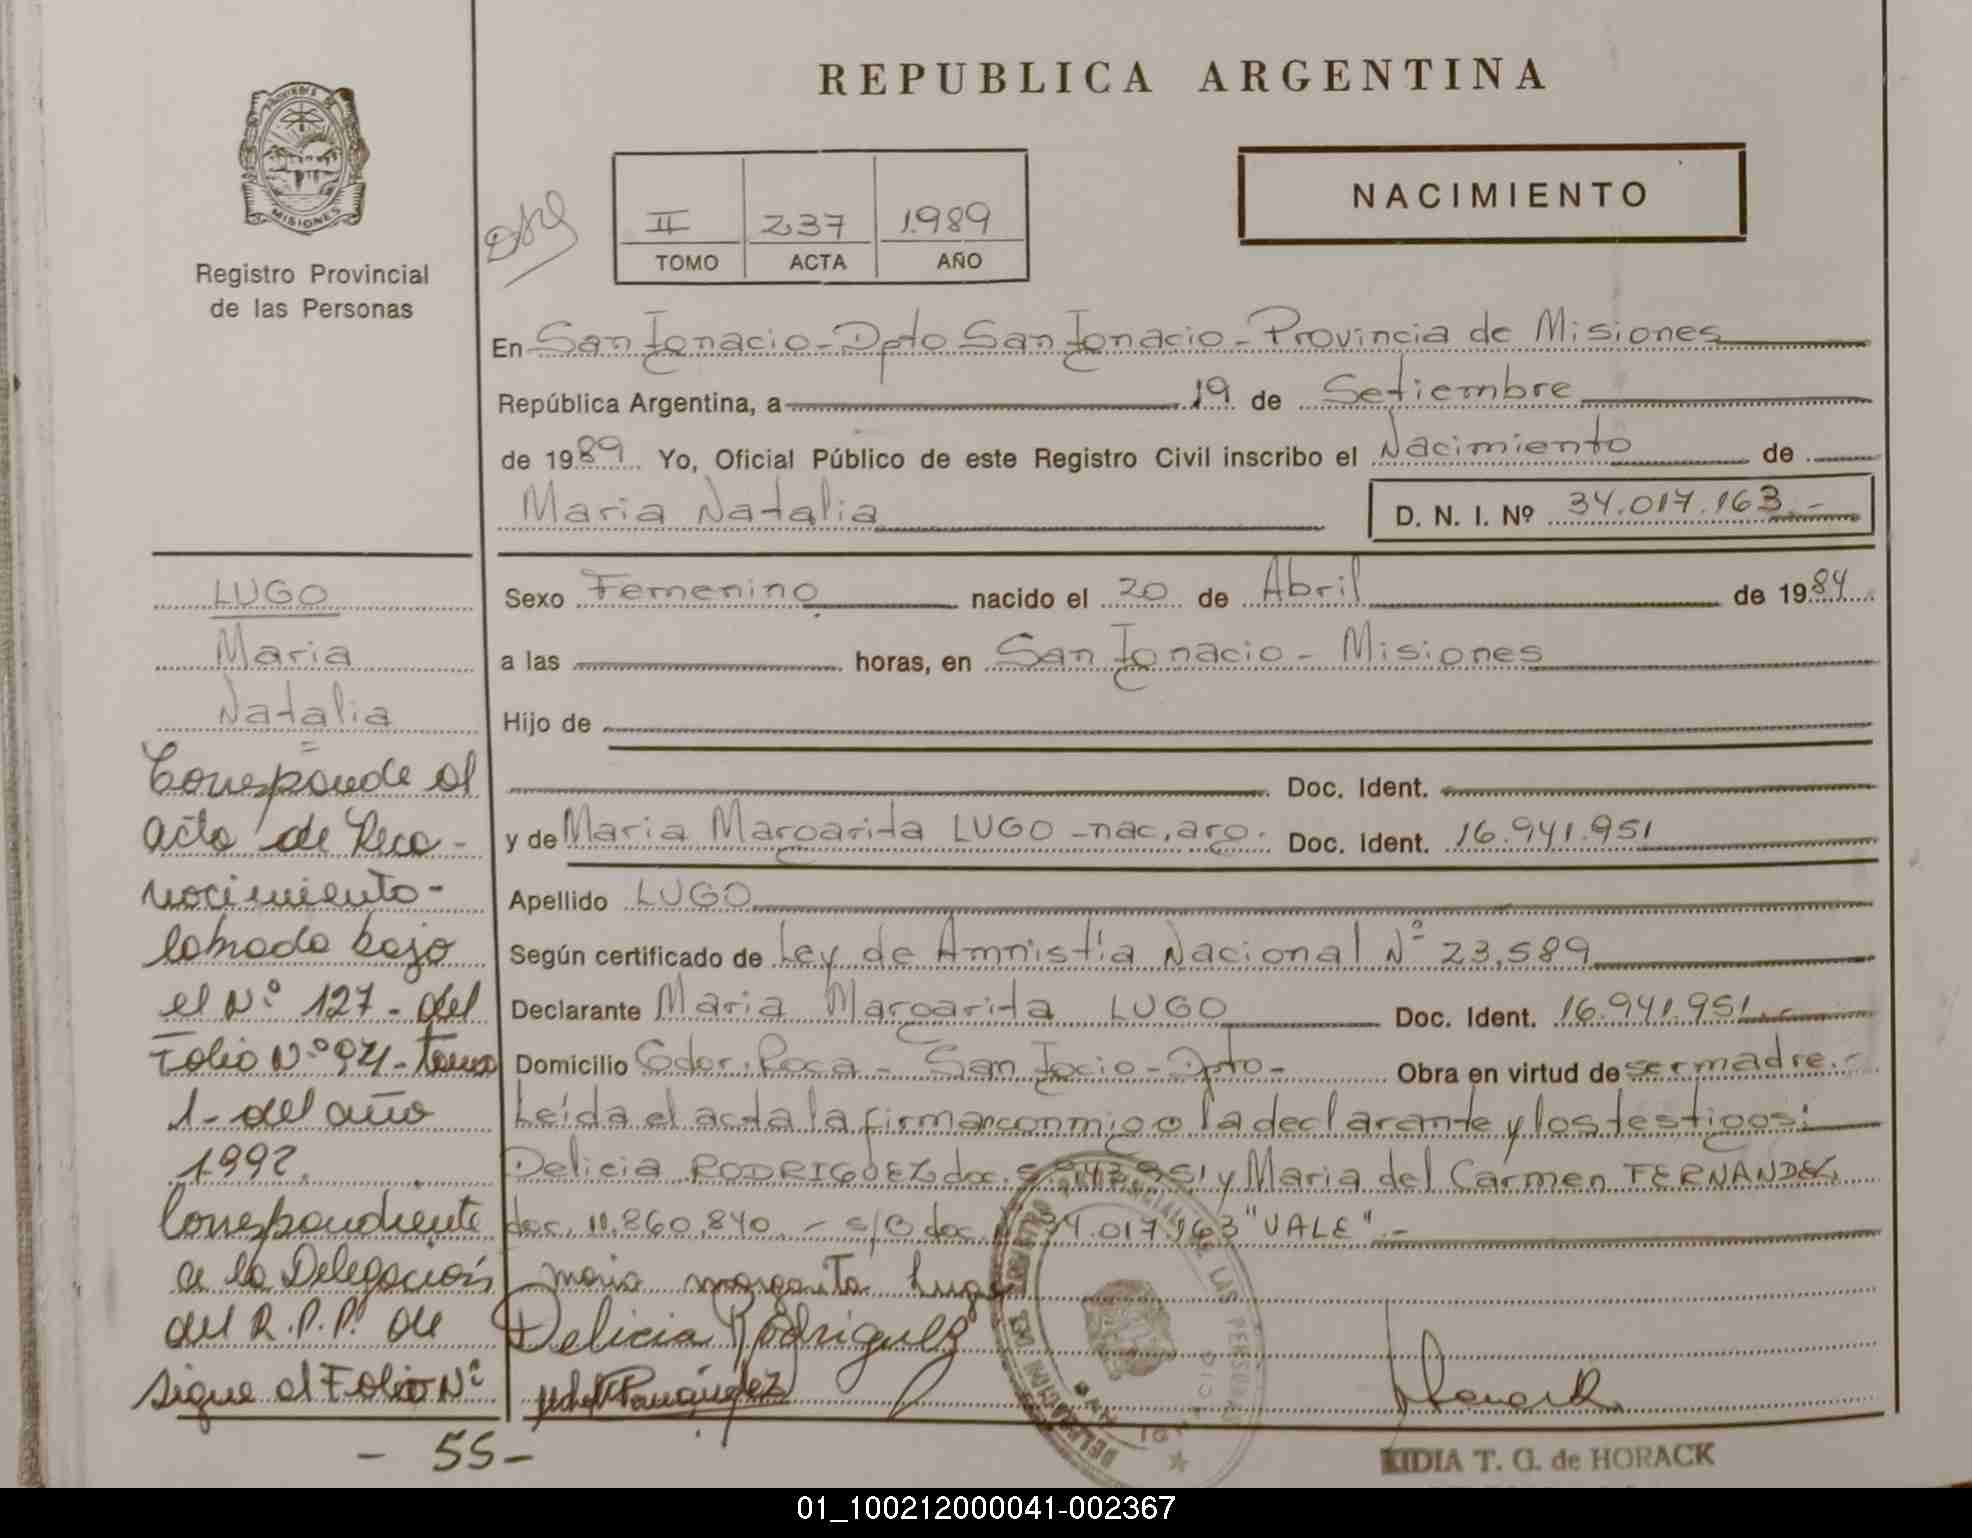 REPUBLICA ARGENTINA
PROVINCIA DE
MISIONES
Registro Provincial
de las Personas
II 237 1.989
TOMO ACTA AÑO
NACIMIENTO
En San Ignacio - Dpto San Ignacio - Provincia de Misiones
República Argentina, a 19 de Setiembre
de 1989 Yo, Oficial Público de este Registro Civil inscribo el Nacimiento de
Maria Natalia D. N. I. Nº 34.017.163.-
LUGO
Maria
Natalia
Corresponde al
acta de Reco-
nocimiento-
labrado bajo
el Nº 127 - del
Folio Nº 94 - tomo
1 - del año
1992.
Correspondiente
a la Delegación
del R.P.P. de
sigue al Folio Nº
- 55 -
Sexo Femenino nacido el 20 de Abril de 1984
a las horas, en San Ignacio - Misiones
Hijo de
Doc. Ident.
y de Maria Margarita LUGO - nac. arg. Doc. Ident. 16.941.951
Apellido LUGO
Según certificado de Ley de Amnistía Nacional Nº 23.589
Declarante Maria Margarita LUGO Doc. Ident. 16.941.951.-
Domicilio Gdor. Roca - San Igcio - Dpto - Obra en virtud de ser madre.-
Leída el acta la firman conmigo la declarante y los testigos:
Delicia RODRIGUEZ doc. 5.943.951 y Maria del Carmen FERNANDEZ
doc. 11.860.840. - s/B doc. 34.017.163 "VALE".-
maria margarita Lugo
Delicia Rodriguez
Horack
LIDIA T. G. de HORACK
01_100212000041-002367